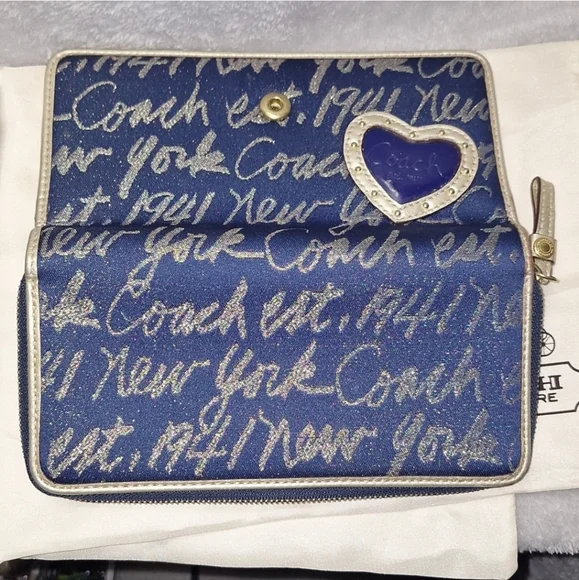 1941 New York Coa
Coach est. 1941 New
w York Coach
Coach
est. 1941 New York
ew York Coach est.
k Coach est. 1941 N
41 New York Coach e
est. 1941 New York
RE